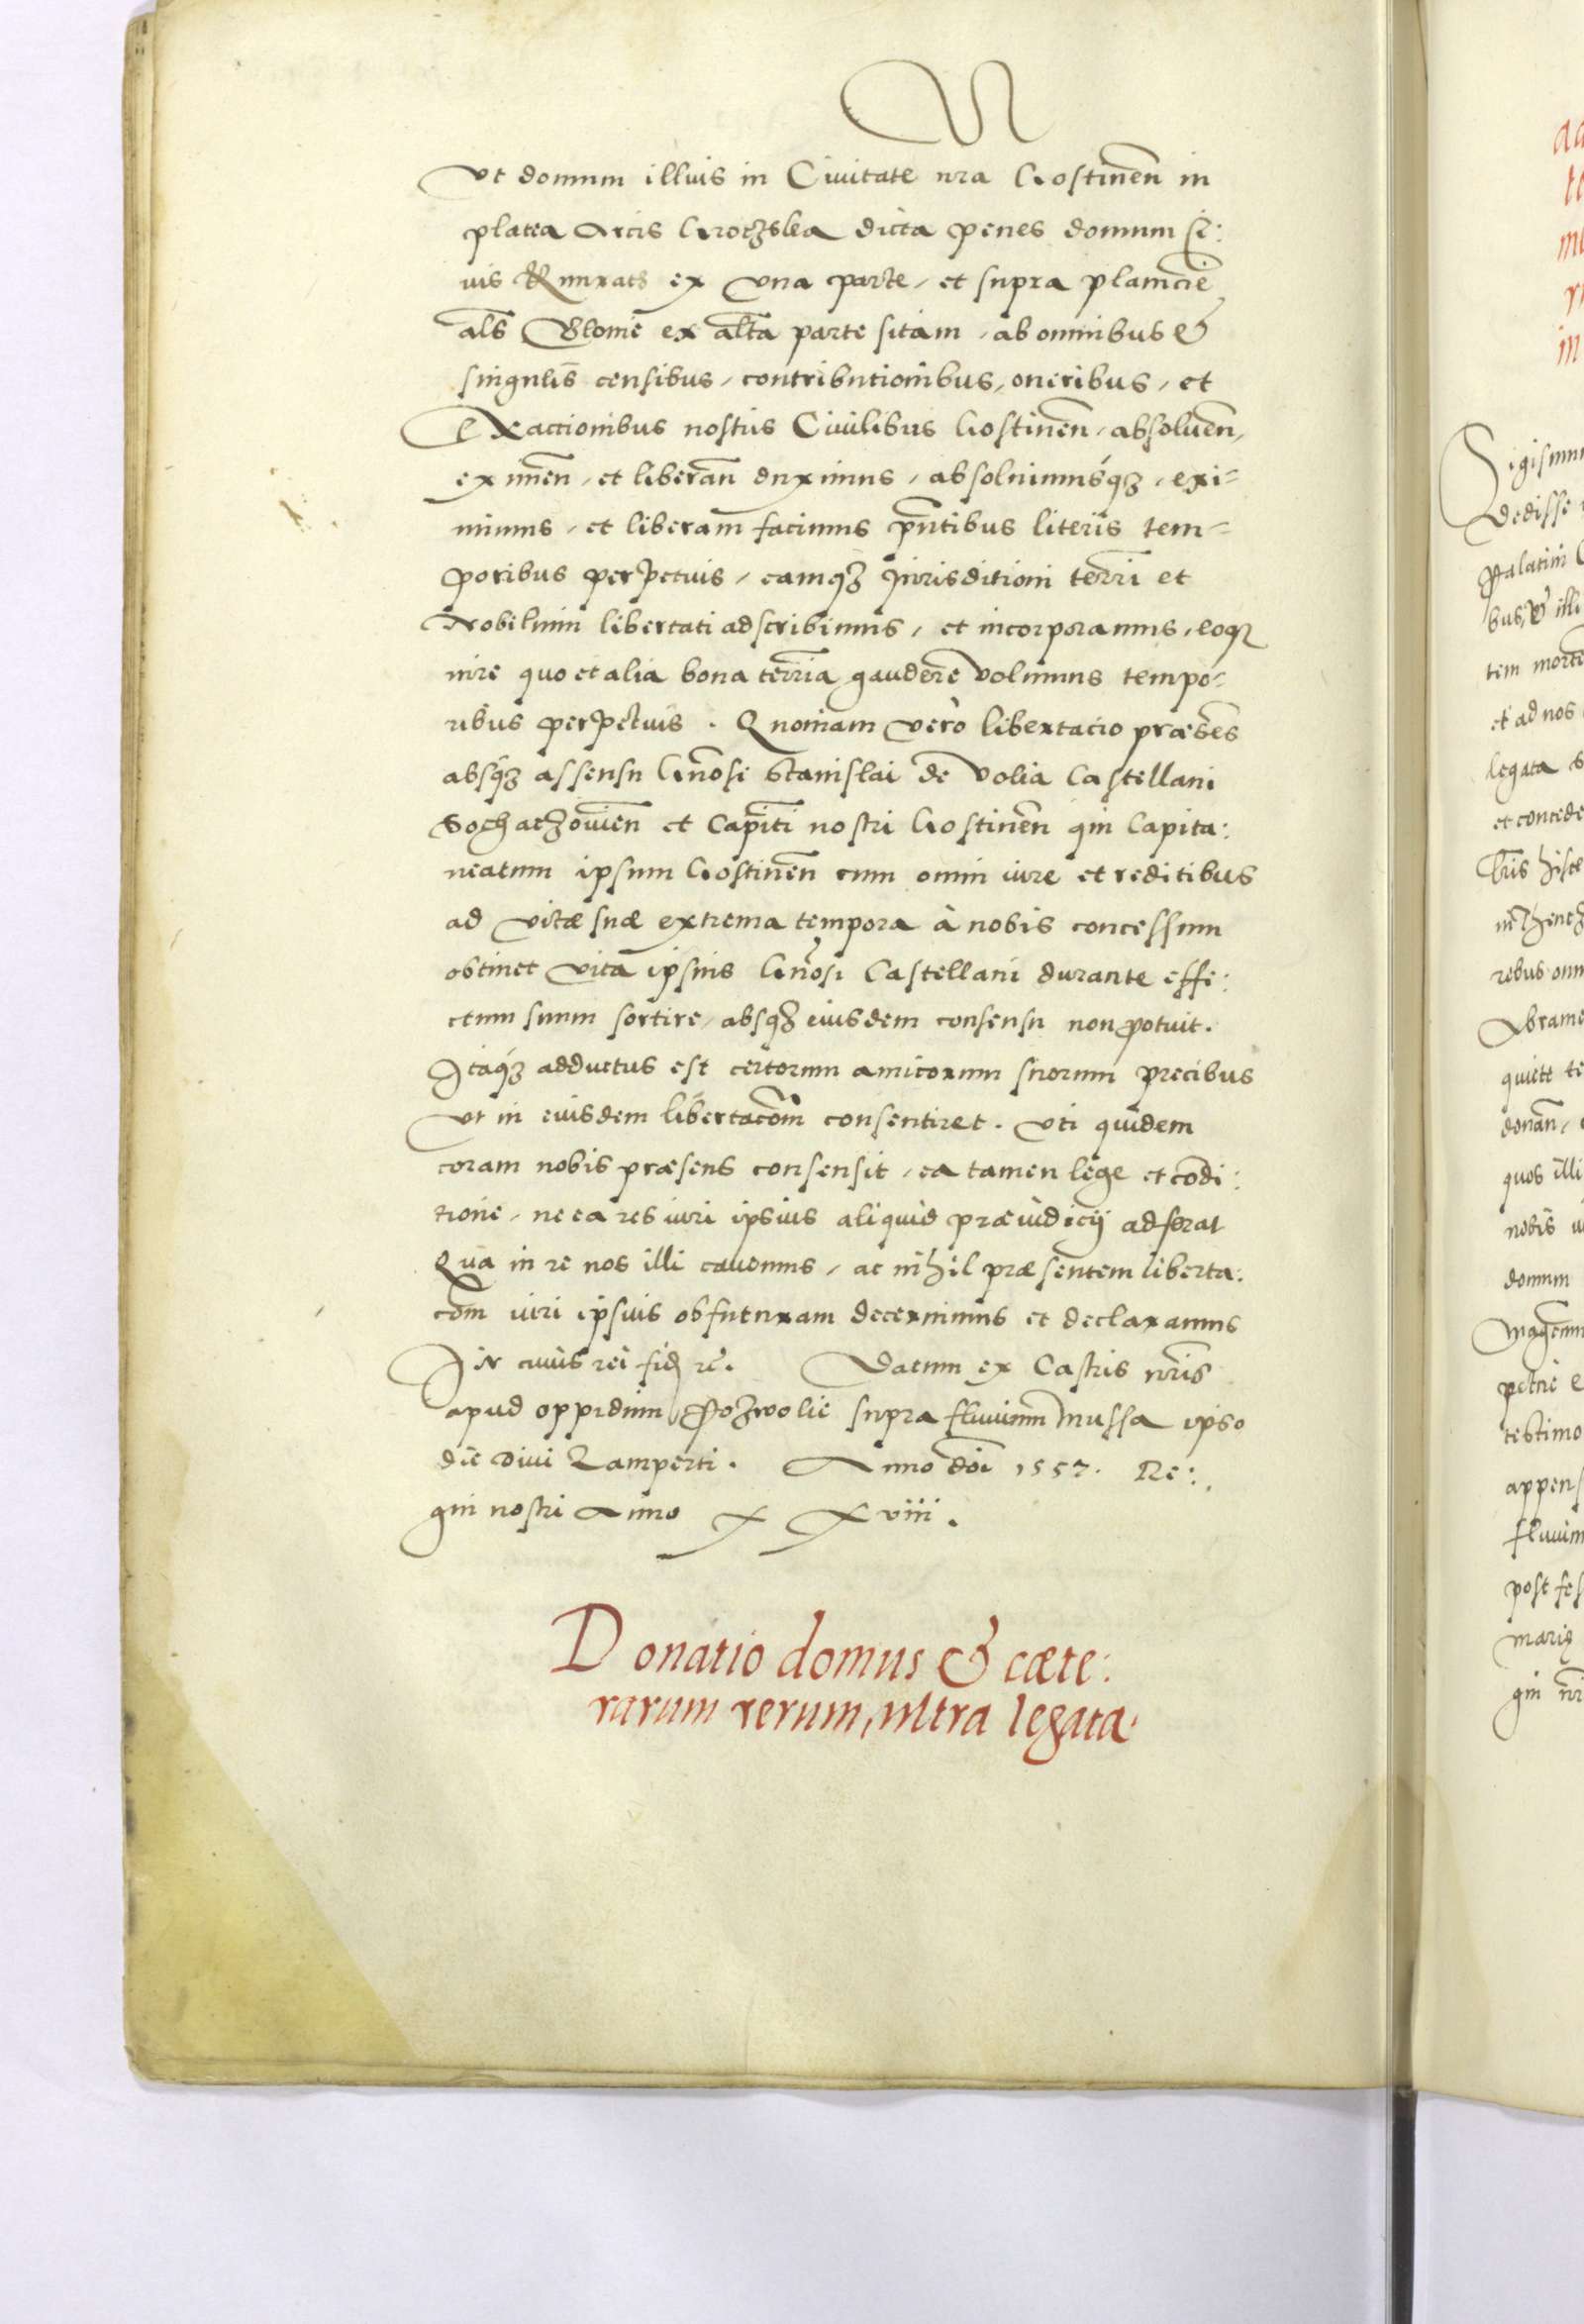 Vt domum illius in Ciuitate nra Gostinen̄ in
platea Arcis Groczska dicta penes domum
ex vna parte, et supra planiciē
als̄ Blonie ex alt̄a parte sitam, ab omnibus &
singulis censibus, contributionibus, oneribus, et
Exactionibus nostris Ciuilibus Gostinen̄, absoluen̄,
eximen̄, et liberan̄ duximus, absoluimusq́ꝫ, exi=
mimus, et liberam facimus pn̄tibus literis tem=
poribus perpetuis, eamqꝫ Iurisditioni terri et
Nobilium libertati adscribimus, et incorporamus, eoqꝫ
iure quo et alia bona terr̄ia gaudere volumus tempo=
ribus perpetuis. Quoniam vero libertatio præsēs
absq́ꝫ assensu Gn̄osi Stanislai de Volia Castellani
Sochaczouien̄ et Capit̄i nostri Gostinen̄ qui Capita:
neatum ipsum Gostinen̄ cum omni iure et reditibus
ad vitæ suæ extrema tempora à nobis concessum
obtinet vita ipsius Gn̄osi Castellani durante effe:
ctum suum sortire, absqꝫ eiusdem consensu non potuit.
Itaq́ꝫ adductus est certorum amicorum suorum precibus
Vt in eiusdem libertacōm̄ consentiret. Vti quidem
coram nobis præsens consensit, ea tamen lege et condi:
tione, ne ea res iuri ipsius aliquid præiudicij adferat
Qua in re nos illi cauemus, ac nihil præsentem liberta:
cōm̄ iuri ipsius obfuturam decernimus et declaramus
In cuius rei fidē rē. Datum ex Castris nr̄is
apud oppidum Pozwolie supra fluuium Mussa ipso
die Diui Lamperti. Anno dōi 1557. Re:
gni nostri Anno XXviii.
Donatio domus & cæte:
rarum rerum, ultra legata